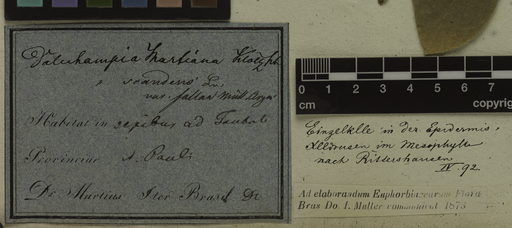 Dalechampia Martiana Klotzsch
scandens Ln.
var. fallax Müll. Arg.
Habitat in sepibus ad Taubaté
Provinciae S. Pauli
Dr. Martius Iter Brasil
0 1 2 3 4
cm
copyrig
Einzelklle in der Epidermis,
in Mesophylle
nach Rittershausen
IV. 92.
Ad elaborandum Euphorbiacearum Flora
Bras Do. I. Müller communicat 1873